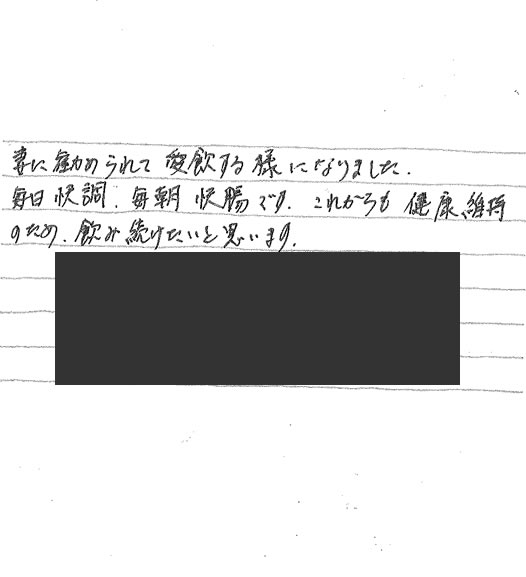 妻に勧められて 愛飲する様になりました.
毎日快調. 毎朝快腸です. これからも 健康維持
のため. 飲み続けたいと思います.